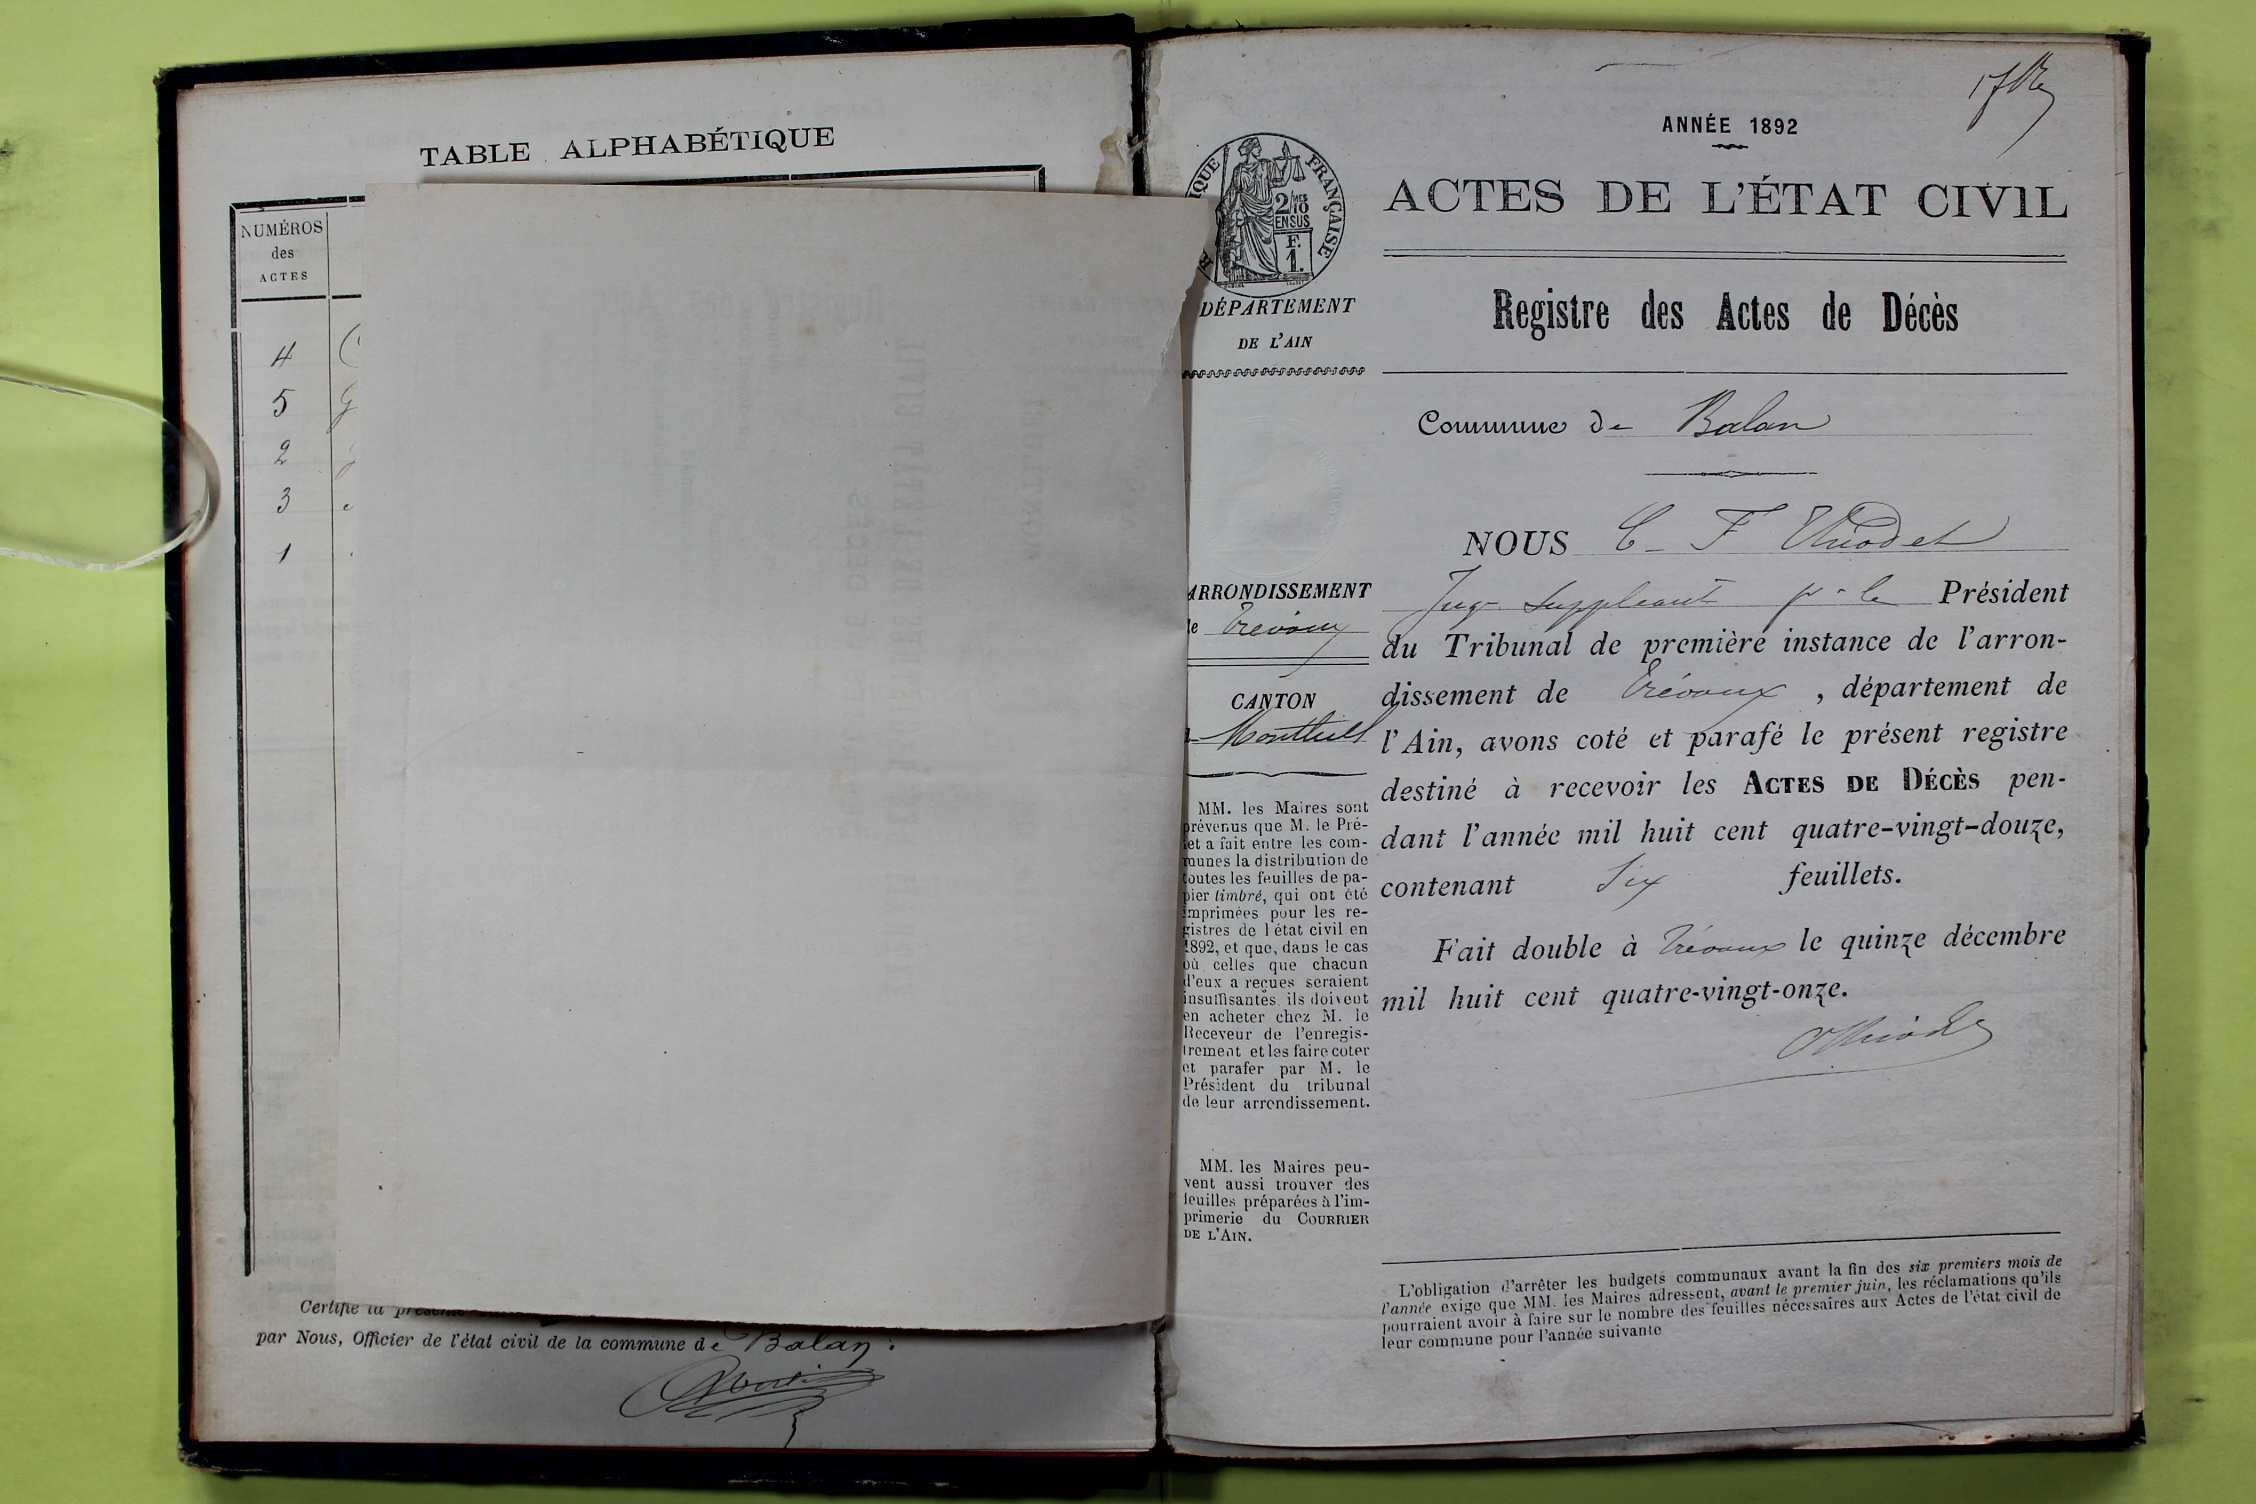 TABLE ALPHABÉTIQUE
NUMÉROS
des
ACTES
4
5
2
3
1
Certifié la présente
par Nous, Officier de l'état civil de la commune de Balan.
ANNÉE 1892
FRANÇAISE
2/10MES
EN SUS
F.
1.
DÉPARTEMENT
DE L'AIN
ARRONDISSEMENT
de Trévoux
CANTON
Montluel
MM. les Maires sont
prévenus que M. le Pré-
fet a fait entre les com-
munes la distribution de
toutes les feuilles de pa-
pier timbré, qui ont été
imprimées pour les re-
gistres de l'état civil en
1892, et que, dans le cas
où celles que chacun
d'eux a reçues seraient
insuffisantes ils doivent
en acheter chez M. le
Receveur de l'enregis-
trement et les faire coter
et parafer par M. le
Président du tribunal
de leur arrondissement.
MM. les Maires peu-
vent aussi trouver des
feuilles préparées à l'im-
primerie du COURRIER
DE L'AIN.
ACTES DE L'ÉTAT CIVIL
Registre des Actes de Décès
Commune de Balan
NOUS C. F.
Juge Suppléant pr le Président
du Tribunal de première instance de l'arron-
dissement de Trévoux, département de
l'Ain, avons coté et parafé le présent registre
destiné à recevoir les ACTES DE DÉCÈS pen-
dant l'année mil huit cent quatre-vingt-douze,
contenant Six feuillets.
Fait double à Trévoux le quinze décembre
mil huit cent quatre-vingt-onze.
L'obligation d'arrêter les budgets communaux avant la fin des six premiers mois de
l'année exige que MM. les Maires adressent, avant le premier juin, les réclamations qu'ils
pourraient avoir à faire sur le nombre des feuilles nécessaires aux Actes de l'état civil de
leur commune pour l'année suivante